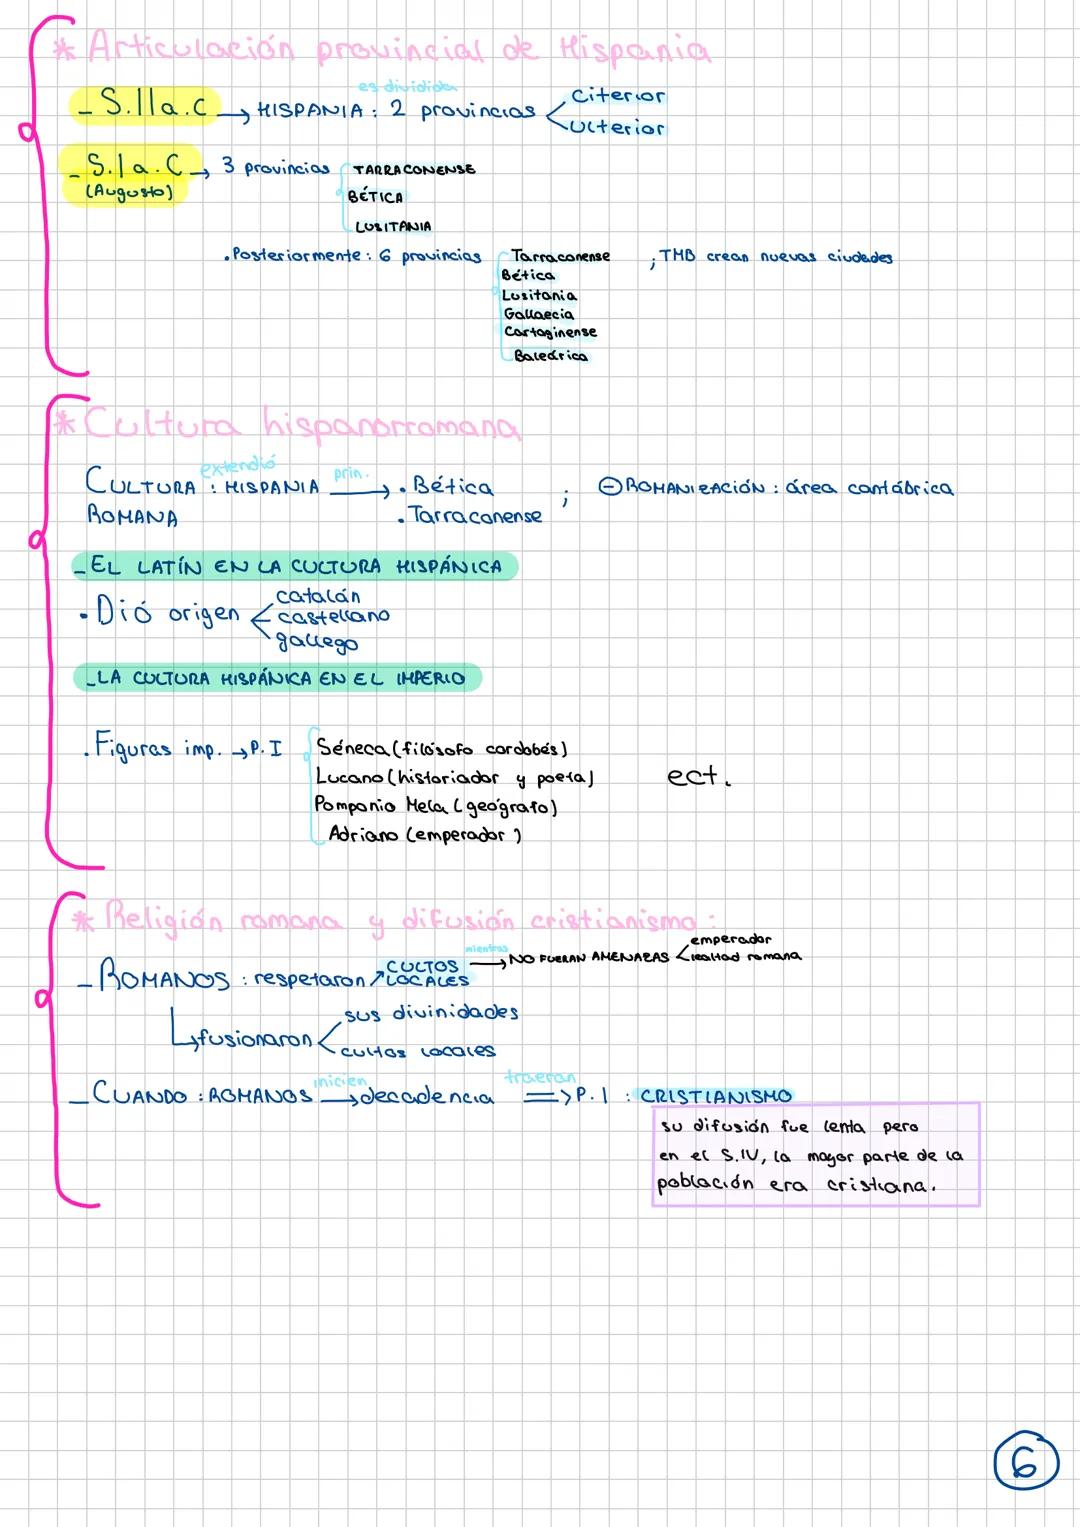 * Articulación provincial de Hispania
es dividida
- S.II a.C → HISPANIA : 2 provincias < Citerior
Ulterior
- S.I a.C → 3 provincias TARRACONENSE
(Augusto)
BÉTICA
LUSITANIA
. Posteriormente : 6 provincias Tarraconense ; TMB crean nuevas ciudades
Bética
Lusitania
Gallaecia
Cartaginense
Baleárica
* Cultura hispanorromana
extendió prin.
CULTURA : HISPANIA → . Bética ; ⊖ ROMANIZACIÓN : área cantábrica
ROMANA . Tarraconense
- EL LATÍN EN LA CULTURA HISPÁNICA
. Dió origen < catalán
castellano
gallego
- LA CULTURA HISPÁNICA EN EL IMPERIO
. Figuras imp. → P.I Séneca (filósofo cordobés)
Lucano (historiador y poeta) ect.
Pomponio Mela (geógrafo)
Adriano (emperador)
* Religión romana y difusión cristianismo :
mientras
- ROMANOS : respetaron ↗ CULTOS LOCALES → NO FUERAN AMENAZAS < emperador
lealtad romana
↳ fusionaron < sus divinidades
cultos locales
inicien traeran
- CUANDO : ROMANOS → decadencia => P.I : CRISTIANISMO
su difusión fue lenta pero
en el S.IV, la mayor parte de la
población era cristiana.
6